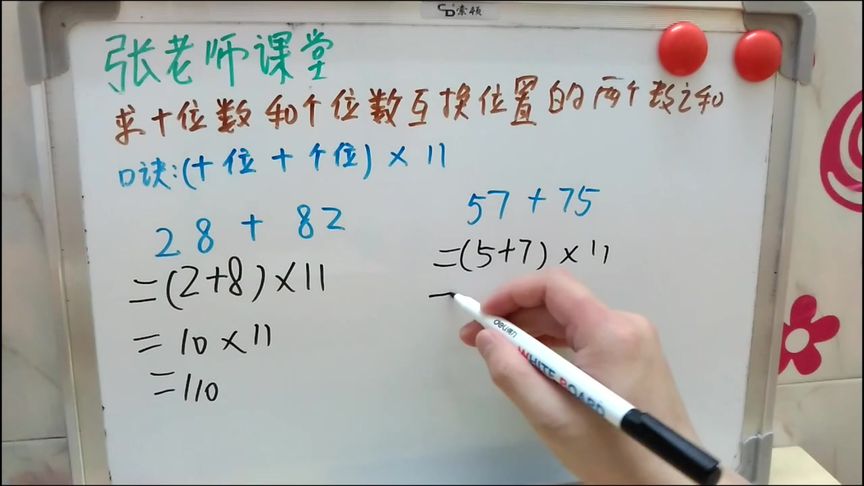 索顿
张老师课堂
求十位数和个位数互换位置的两个数之和
口诀:(十位+个位)×11
28+82
=(2+8)×11
=10×11
=110
57+75
=(5+7)×11
deli
WHITE BOARD